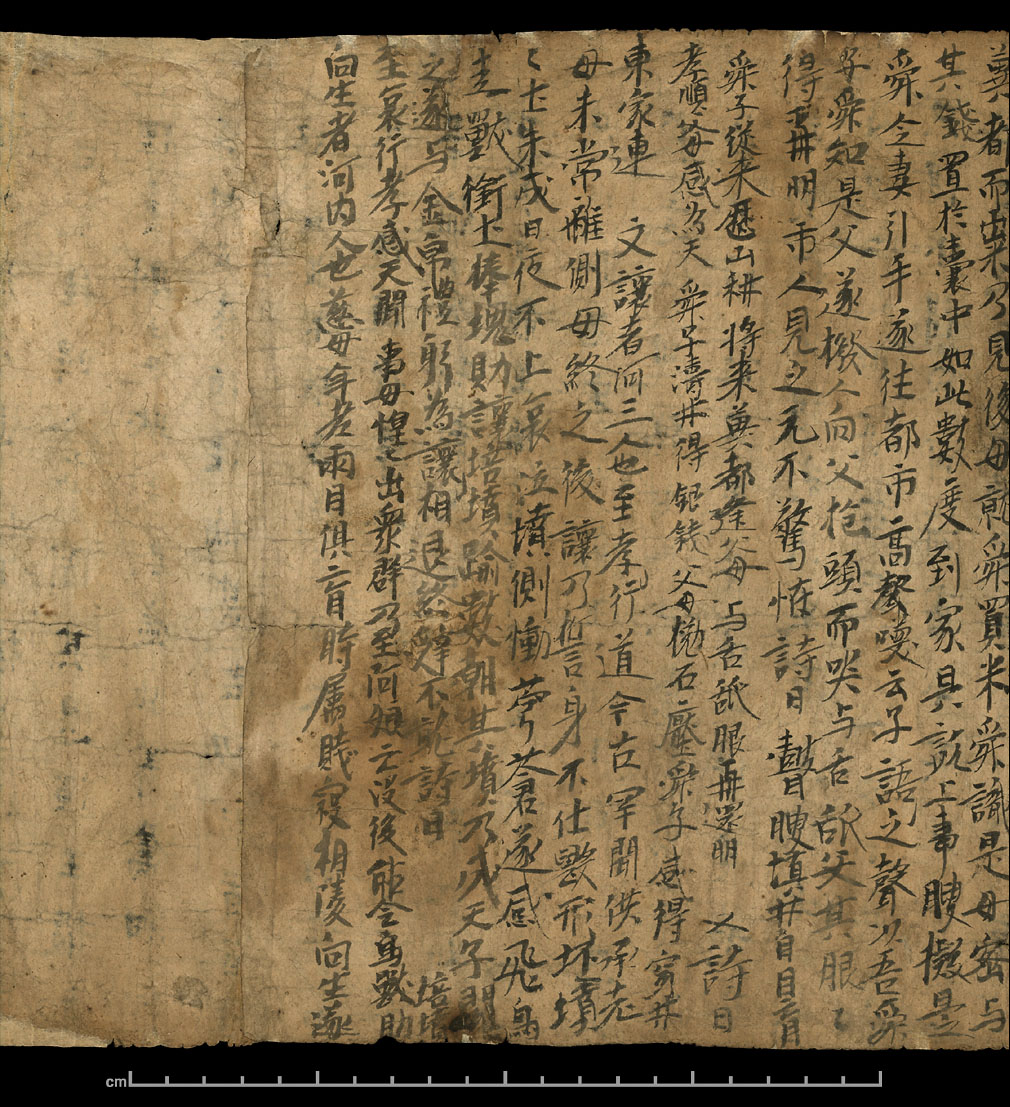 冀者而粜乃見後母就舜買米舜識是母密与
其錢置於囊中如此數度到家具說上事瞍擬是
舜令妻引手遂往都市高聲喚云子語之聲以吾舜
子舜知是父遂撥人向父抱頭而哭与舌舐父其眼〻
得再明市人見之无不驚怪詩曰瞽瞍填井自目盲
舜子從来歷山耕將来冀都逢父母与舌舐眼再還明 又詩曰
孝順父母感於天舜子濤井得銀錢父母抛石壓舜子感得穿井
東家連 文讓者河三人也至孝行道今古罕聞供承老
母未常離側母終之後讓乃誓身不仕獸形坏墳
〻土未成日夜不上哀泣墳側慟 蒼遂感飛鳥
走獸銜土捧塊助讓培墳踰數朝其墳乃成天子聞
之遂与金帛禮躬為讓相退終辞不就詩曰 培墳
至哀行孝感天聞事母惶〻出衆群乃至阿娘亡没後能令鳥獸助
向生者河内人也慈母年老兩目俱盲時属賊寇相陵向生遂